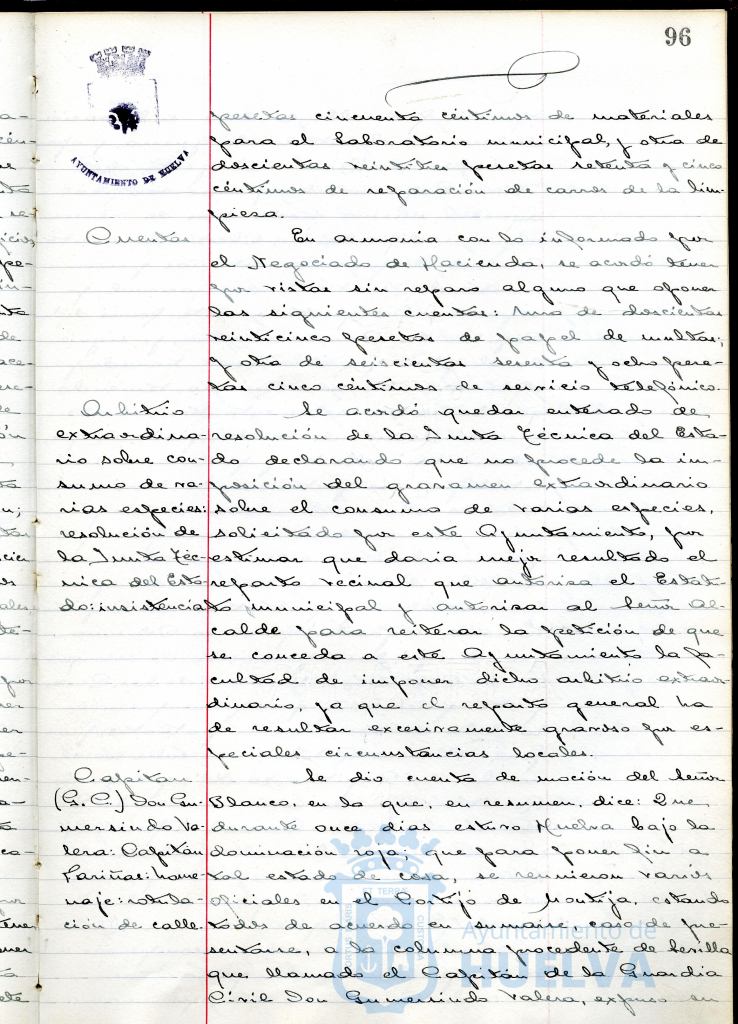 96
AYUNTAMIENTO DE HUELVA
pesetas cincuenta céntimos de materiales
para el Laboratorio municipal, y otra de
doscientas veintitres pesetas setenta y cinco
céntimos de reparación de carros de la lim-
pieza.
Cuentas
En armonia con lo informado por
el Negociado de Hacienda, se acordó tener
por vistas sin reparo alguno que oponer
las siguientes cuentas: Una de doscientas
veinticinco pesetas de papel de multas;
y otra de seiscientas sesenta y ocho pese-
tas cinco céntimos de servicio telefónico.
Arbitrio
extraordina-
rio sobre con-
sumo de va-
rias especies:
resolución de
la Junta Téc-
nica del Esta-
do: insistencia
Se acordó quedar enterado de
resolución de la Junta Técnica del Esta-
do declarando que no procede la im-
posición del gravamen extraordinario
sobre el consumo de varias especies,
solicitado por este Ayuntamiento, por
estimar que daria mejor resultado el
reparto vecinal que autoriza el Estatu-
to municipal y autorizar al Señor Al-
calde para reiterar la petición de que
se conceda a este Ayuntamiento la fa-
cultad de imponer dicho arbitrio extraor-
dinario, ya que el reparto general ha
de resultar excesivamente gravoso por es-
peciales circunstancias locales.
Capitan
(G. C.) Don Gu-
mersindo Va-
lera: Capitán
Fariñas: home-
naje: rotula-
ción de calle.
Se dio cuenta de moción del Señor
Blanco, en la que, en resumen, dice: Que
durante once dias estuvo Huelva bajo la
dominación roja; que para poner fin a
tal estado de cosa, se reunieron varios
oficiales en el Cortijo de Montija, estando
todos de acuerdo en sumarse caso de pre-
sentarse, a la columna procedente de Sevilla
que, llamado el Capitán de la Guardia
Civil Don Gumersindo Valera, expuso en
Ayuntamiento de
HUELVA